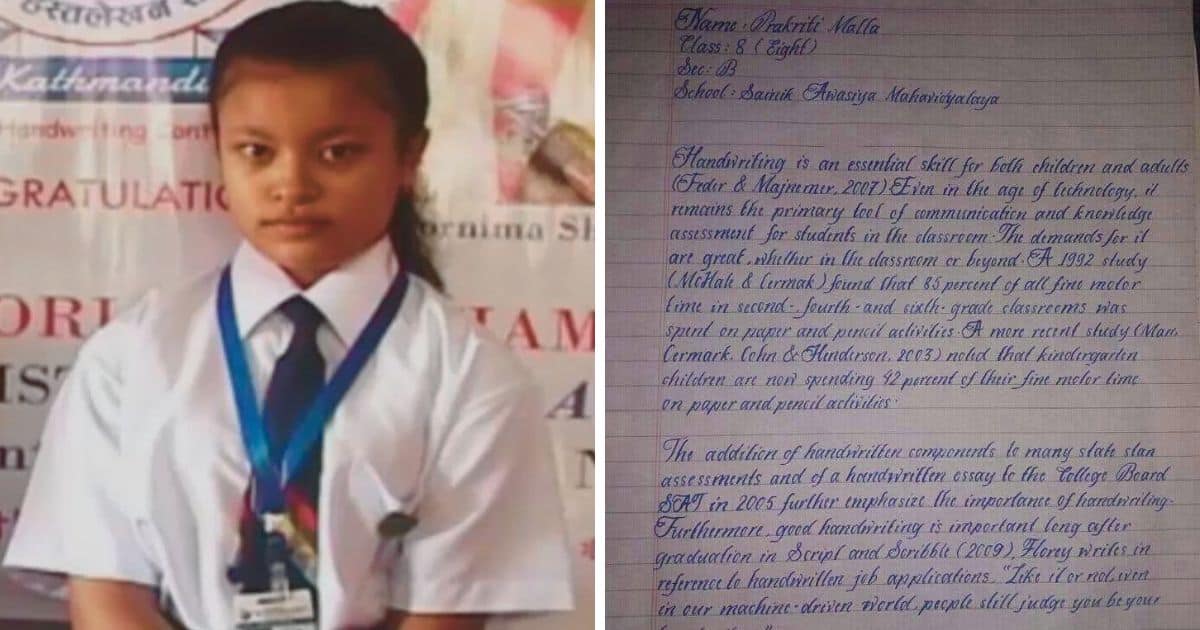 हस्तलेखन
Kathmandu
Handwriting Cont
GRATULATIO
ornima Sh
ORL
HAM
IST
A
N
Name : Prakriti Malla
Class : 8 ( Eight )
Sec : B
School : Sainik Awasiya Mahavidyalaya
Handwriting is an essential skill for both children and adults
(Feder & Majnemer, 2007) Even in the age of technology, it
remains the primary tool of communication and knowledge
assessment for students in the classroom. The demands for it
are great, whether in the classroom or beyond. A 1992 study
(McHale & Cermak) found that 85 percent of all fine motor
time in second-, fourth-and sixth-grade classrooms was
spent on paper and pencil activities. A more recent study (Marr,
Cermark, Cohn & Henderson, 2003) noted that kindergarten
children are now spending 42 percent of their fine motor time
on paper and pencil activities.
The addition of handwritten components to many state stan
assessments and of a handwritten essay to the College Board
SAT in 2005 further emphasize the importance of handwriting.
Furthermore, good handwriting is important long after
graduation in Script and Scribble (2009), Florey writes in
reference to handwritten job applications, "Like it or not, even
in our machine-driven world, people still judge you be your